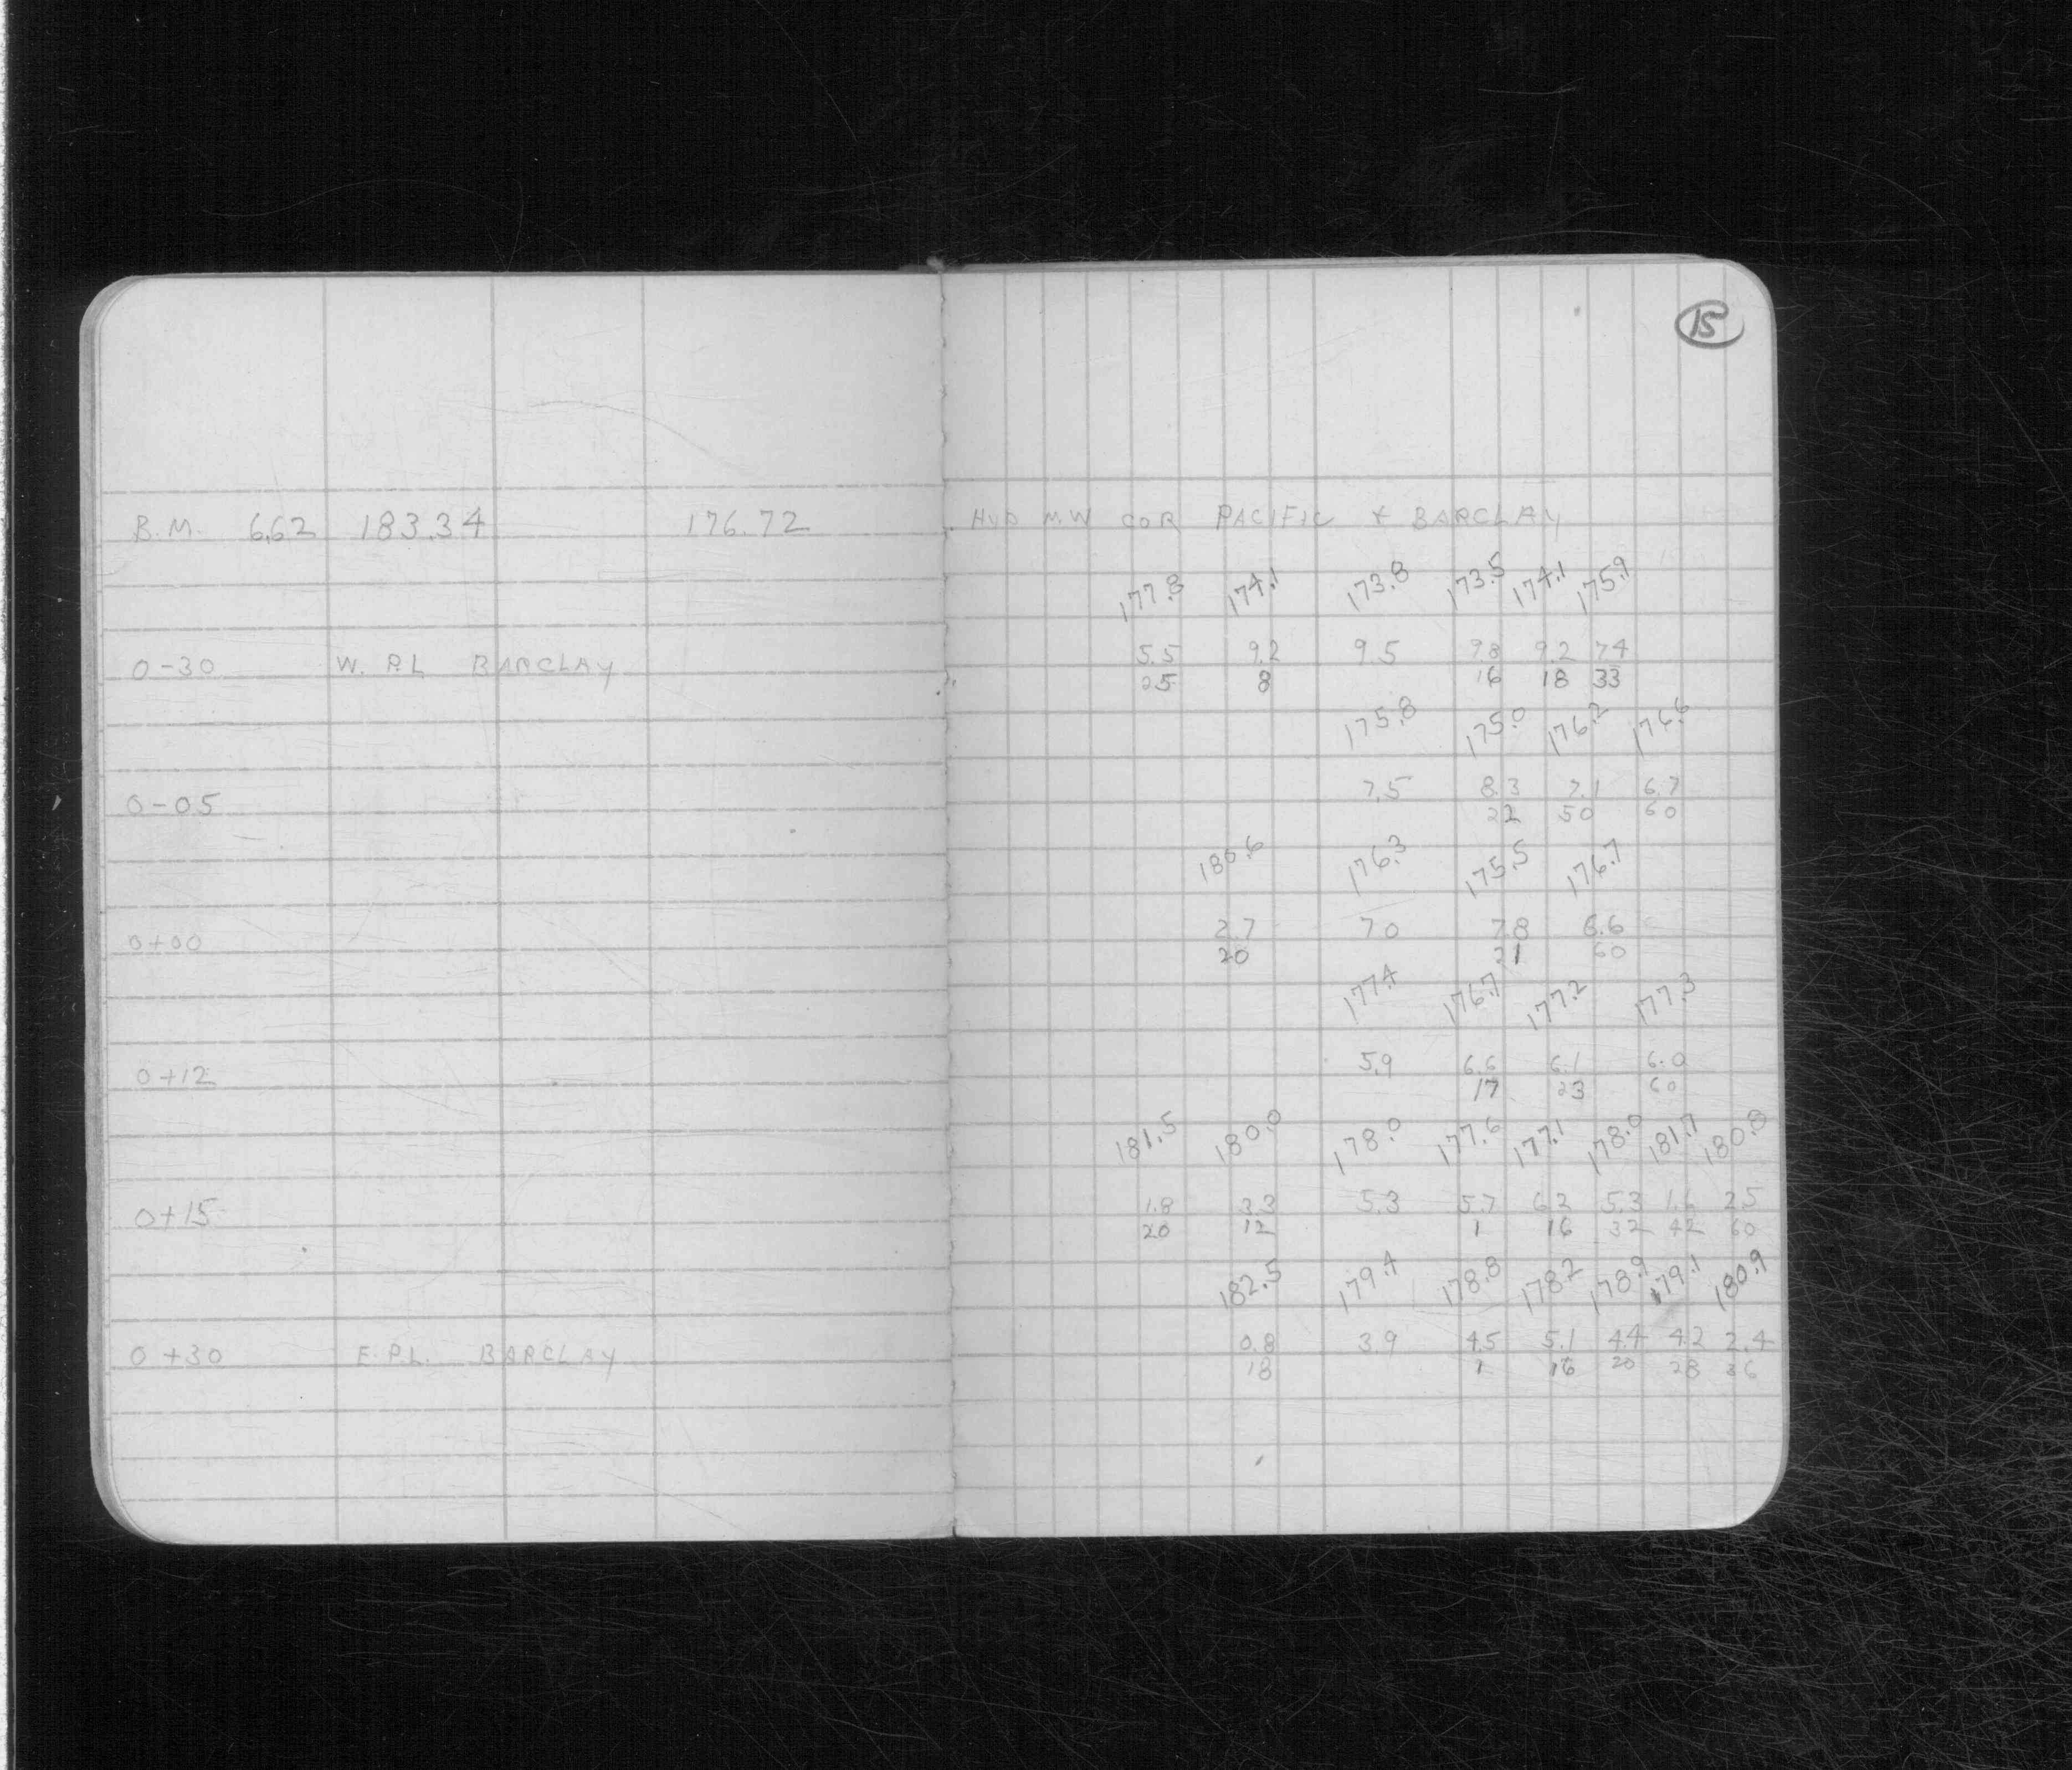 15
B.M. 6.62 183.34 176.72 HYD M.W COR PACIFIC & BARCLAY
177.8 174.1 173.8 173.5 174.1 175.9
0-30 W. P.L BARCLAY 5.5 9.2 9.5 9.8 9.2 7.4
25 8 16 18 33
175.8 175.0 176.2 176.6
0-05 7.5 8.3 7.1 6.7
22 50 60
180.6 176.3 175.5 176.7
0+00 2.7 7.0 7.8 6.6
20 21 60
177.4 176.7 177.2 177.3
0+12 5.9 6.6 6.1 6.0
17 23 60
181.5 180.0 178.0 177.6 177.1 178.0 181.7 180.8
0+15 1.8 3.3 5.3 5.7 6.2 5.3 1.6 2.5
20 12 1 16 32 42 60
182.5 179.4 178.8 178.2 178.9 179.1 180.9
0+30 E.P.L. BARCLAY 0.8 3.9 4.5 5.1 4.4 4.2 2.4
18 1 16 20 28 36